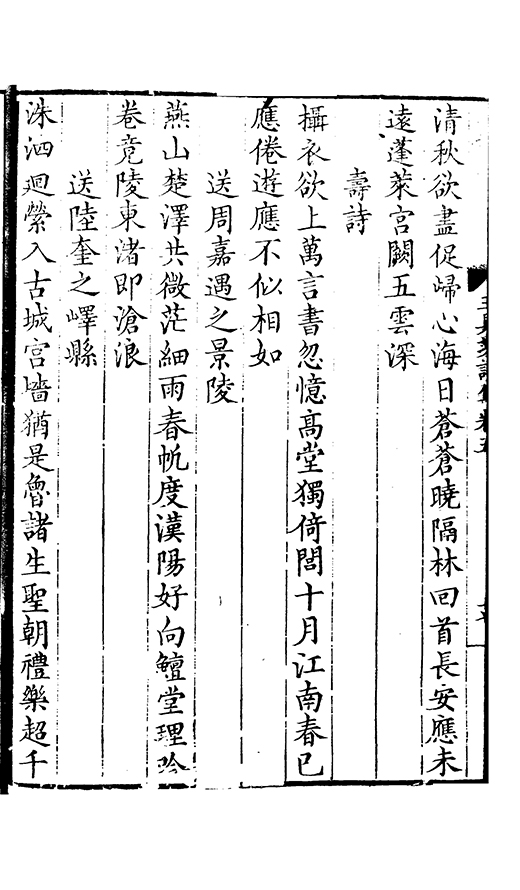 清秋欲盡促歸心海日蒼蒼曉隔林回首長安應未
遠蓬萊宮闕五雲深
壽詩
攝衣欲上萬言書忽憶高堂獨倚閭十月江南春已
應倦遊應不似相如
送周嘉遇之景陵
燕山楚澤共微茫細雨春帆度漢陽好向鱣堂理吟
卷竟陵東渚即滄浪
送陸奎之嶧縣
洙泗迴縈入古城宮墻猶是魯諸生聖朝禮樂超千